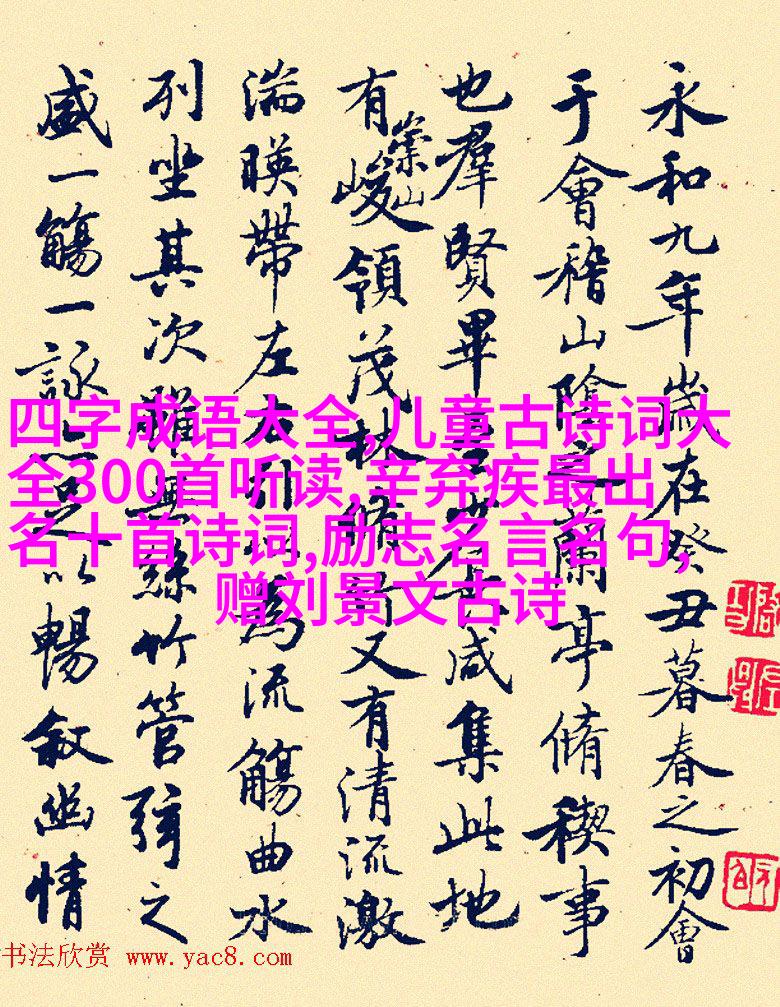 永和九年歲在癸丑暮春之初會
于會稽山陰之蘭亭脩稧事
也羣賢畢至少長咸集此地
有崇山峻領茂林脩竹又有清流激
湍暎帶左右引以為流觴曲水
列坐其次雖無絲竹管弦之
盛一觴一詠亦足以暢敘幽情
四字成语大全,儿童古诗词大
全300首听读,辛弃疾最出
名十首诗词,励志名言名句,
赠刘景文古诗
书法欣赏 www.yac8.com